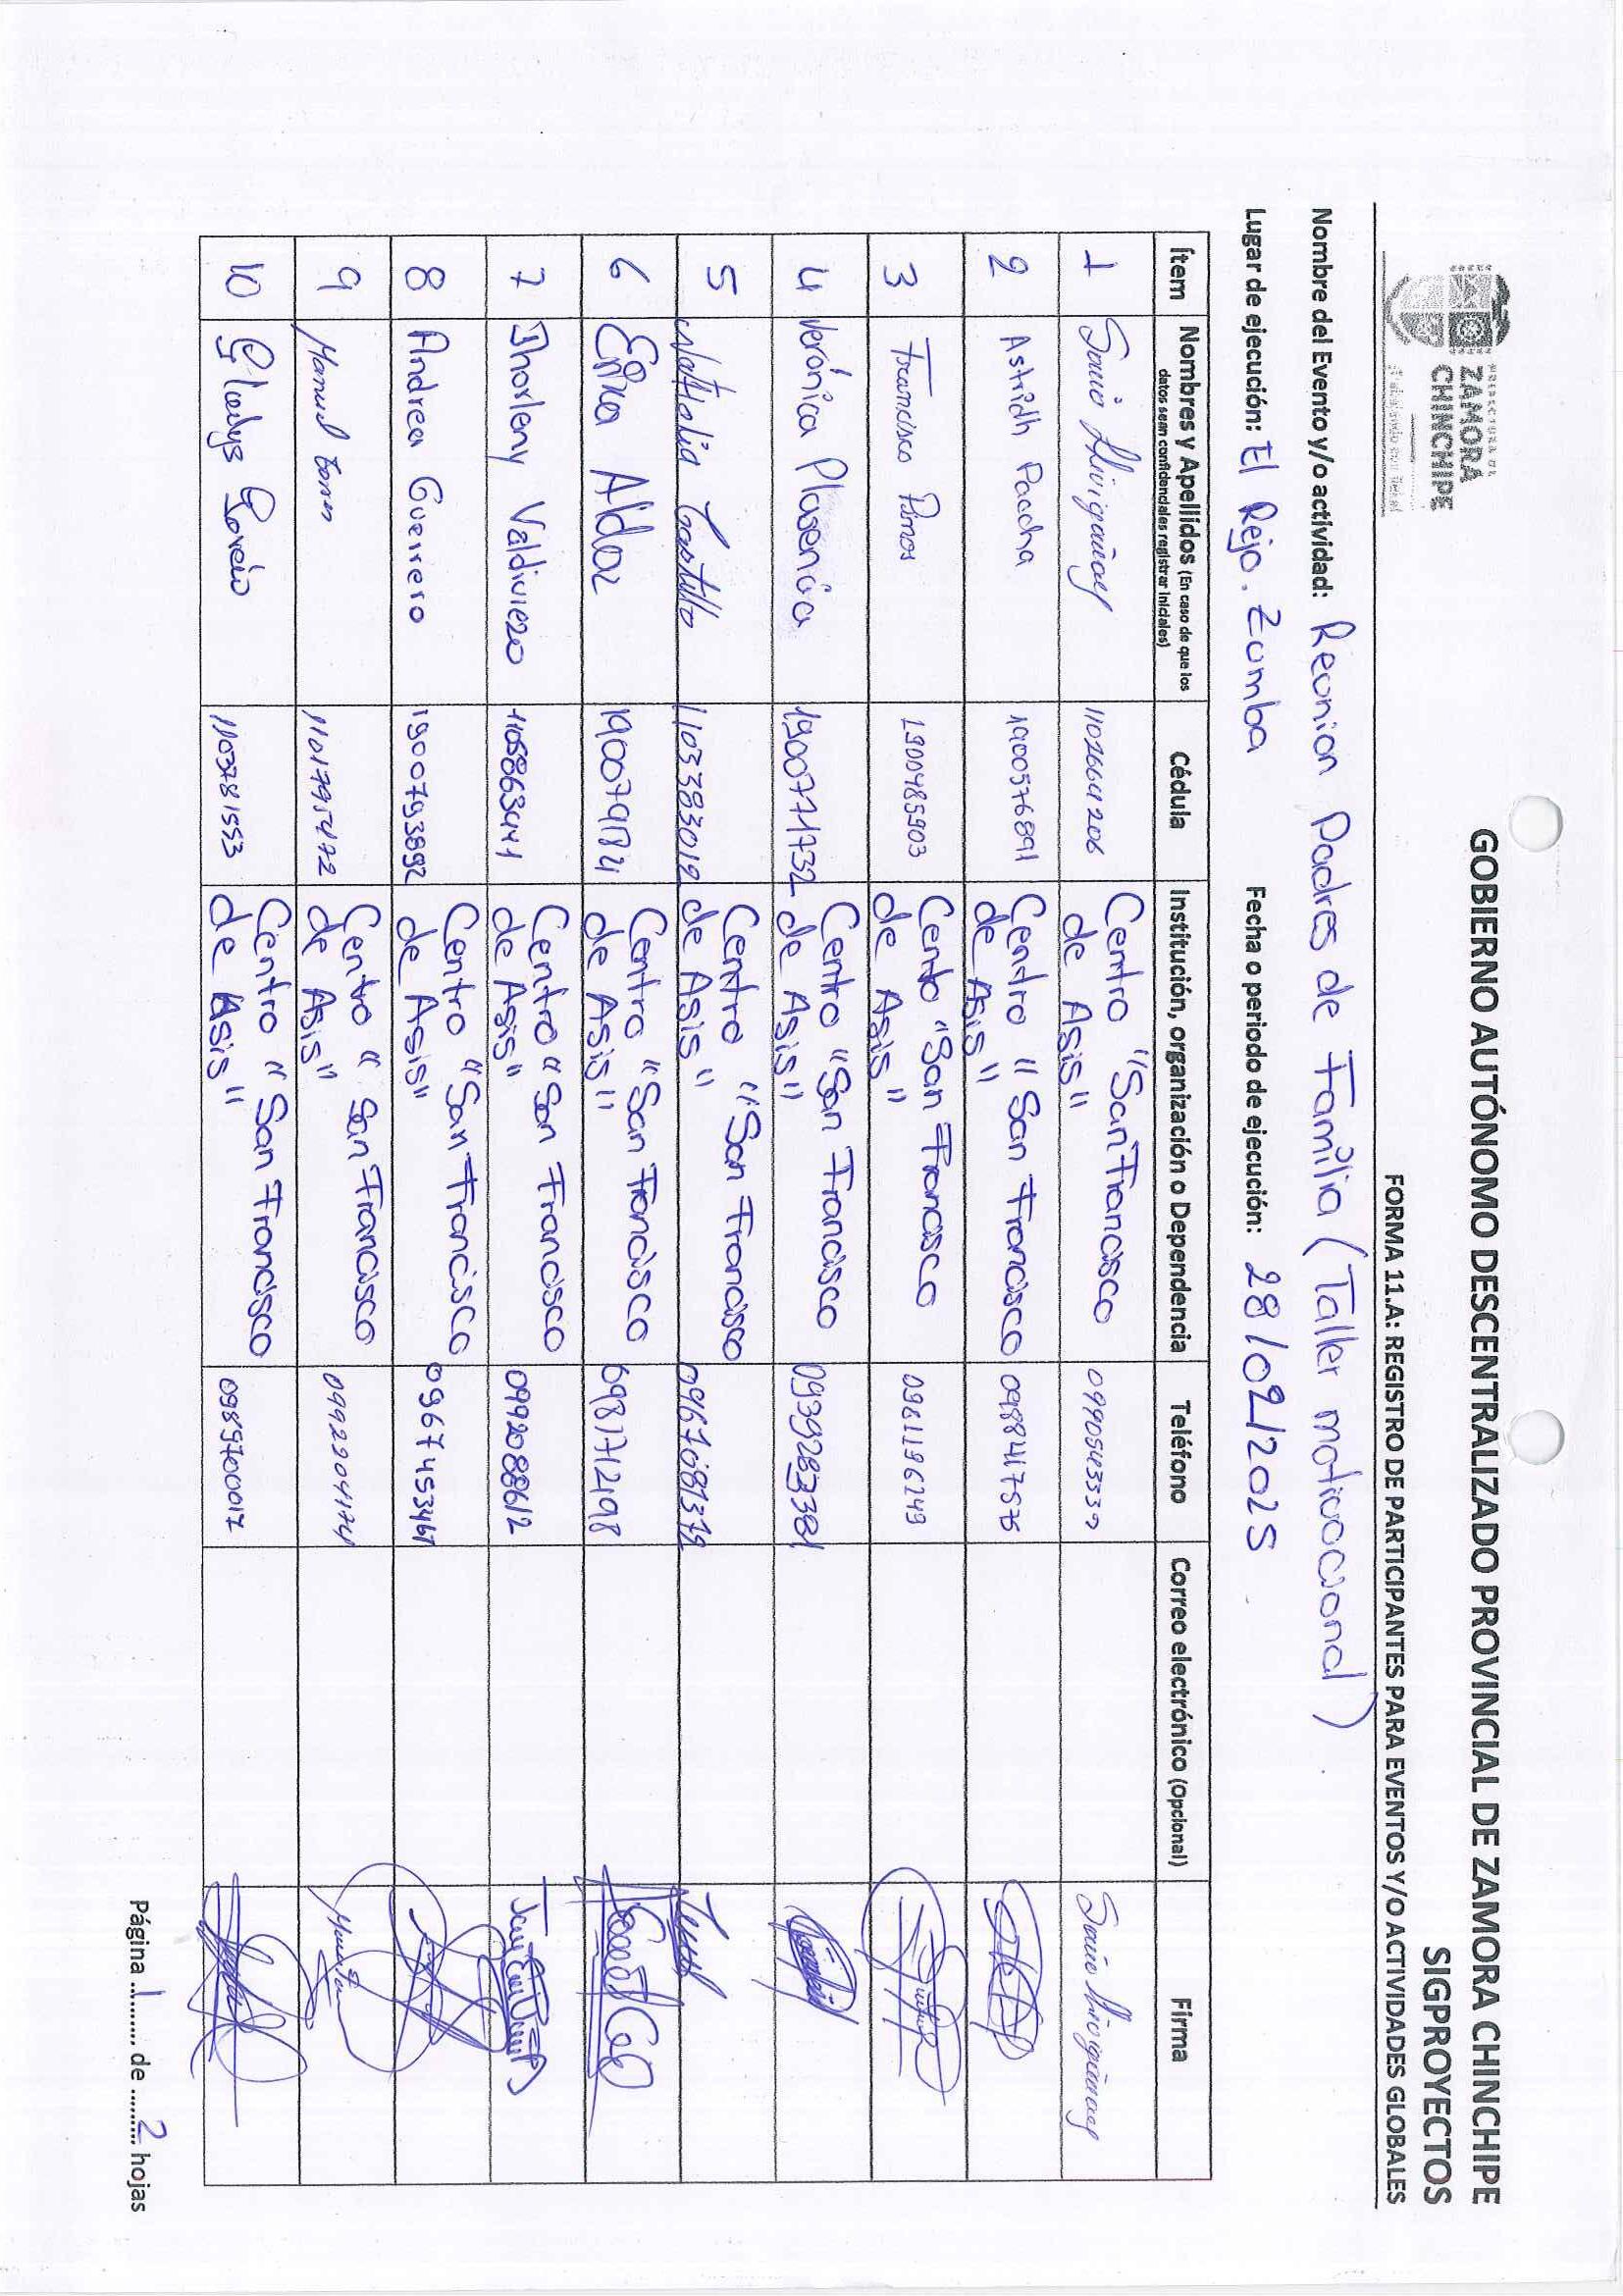 PREFECTURA DE
ZAMORA
CHINCHIPE
GOBIERNO AUTÓNOMO DESCENTRALIZADO PROVINCIAL DE ZAMORA CHINCHIPE
SIGPROYECTOS
FORMA 11.A: REGISTRO DE PARTICIPANTES PARA EVENTOS Y/O ACTIVIDADES GLOBALES
Nombre del Evento y/o actividad: Reunion Padres de Familia (Taller motivacional)
Lugar de ejecución: El Rejo. Zumba Fecha o periodo de ejecución: 28/02/2025
Ítem Nombres y Apellidos (En caso de que los datos sean confidenciales registrar iniciales) Cédula Institución, organización o Dependencia Teléfono Correo electrónico (Opcional) Firma
1 1102669206 Centro "San Francisco
de Asis" 0990543339
2 Astridh Paccha 1900576891 Centro "San Francisco
de Asis" 0988417575
3 Francisco 1900485903 Cento "San Francisco
de Asis" 0981196249
4 Verónica Plasencia 1900771732 Centro "San Francisco
de Asis" 0939283384
5 Castillo 1103383019 Centro "San Francisco
de Asis" 0967681379
6 Erika Aldaz 1900791184 Centro "San Francisco
de Asis" 0981712498
7 Jhorleny Valdiviezo 1105863441 Centro "San Francisco
de Asis" 0992088612
8 Andrea Guerrero 1900793892 Centro "San Francisco
de Asis" 0967453467
9 Manuel Torres Centro "San Francisco
de Asis" 0992304174
10 Gladys 1103781553 Centro "San Francisco
de Asis" 0989700017
Página 1 de 2 hojas